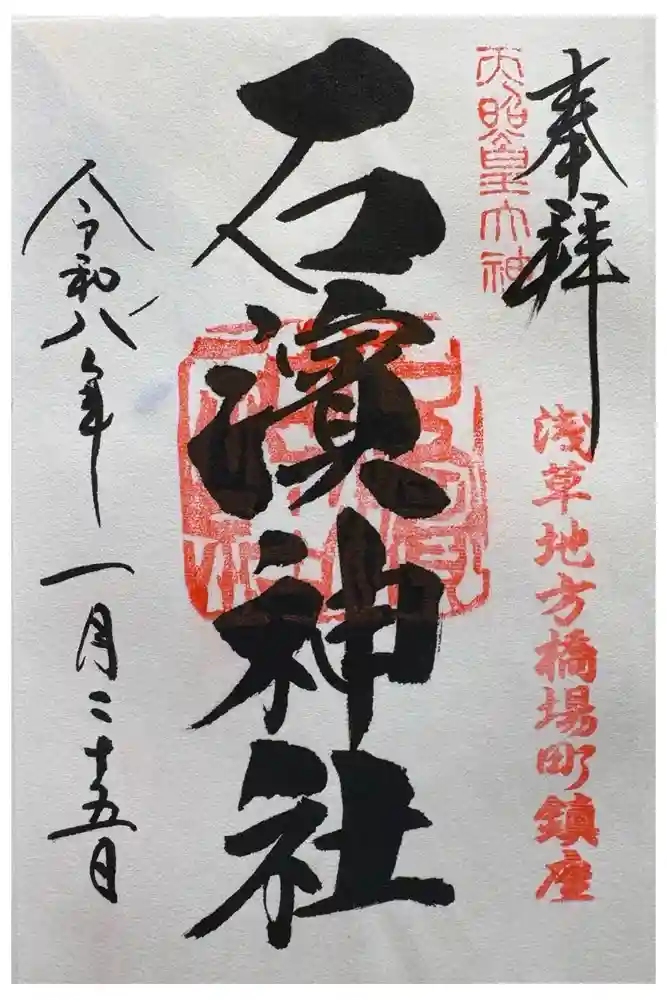 奉拝
天照皇大神
浅草地方橋場町鎮座
石濱神社
令和八年
一月二十五日